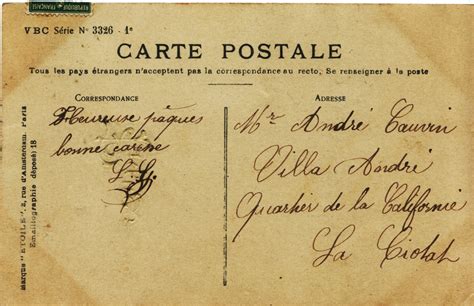 REPUBLIQUE FRANÇAISE
VBC Série Nº 3326 - 1e
CARTE POSTALE
Tous les pays étrangers n'acceptent pas la correspondance au recto, Se renseigner à la poste
CORRESPONDANCE
Heureuse pâques
bonne carème
L. G.
ADRESSE
Mr André Cauvin
Villa André
Quartier de la Californie
La Ciotat
Marque "ETOILE", 2, rue d'Amsterdam, Paris
Emaillographie (déposé) 18